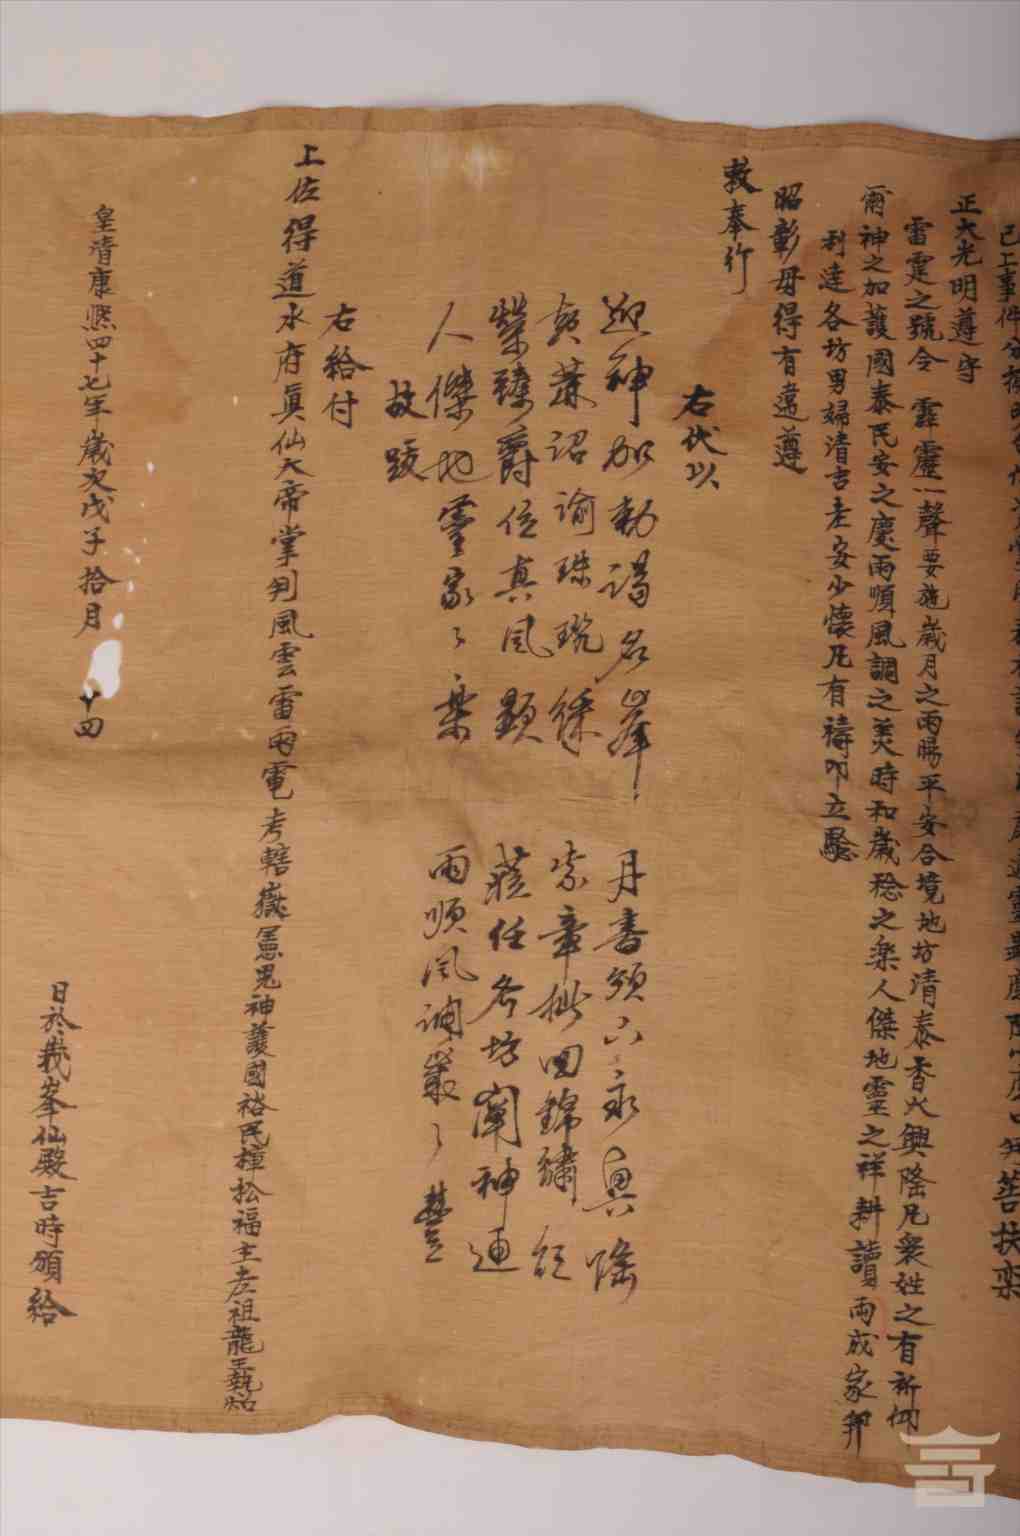 正大光明遵守
雷霆之號令 霹靂一聲要施歲月之雨賜平安合境地坊清泰香火興隆凡衆姓之有祈仰
爾神之加護國泰民安之慶雨順風調之美時和歲稔之樂人傑地靈之祥耕讀兩成家邦
利達各坊男婦清吉老安少懷凡有禱叩立驗
昭彰毋得有違遵
敕奉行
右伏以
迎神加勅謁名峯 月書頒下永興隆
詔諭珠琉 紫章批回錦繡
榮臻爵位真風顯 任各坊闡神通
人傑地靈家〻樂 雨順風調歲〻豐
故牒
右給付
上佐得道水府真仙大帝掌判風雲雷雨電考轄嶽 鬼神護國裕民 松福主老祖龍王
皇清康熙四十七年歲次戊子拾月 十四
日於峩峯仙殿吉時頒給